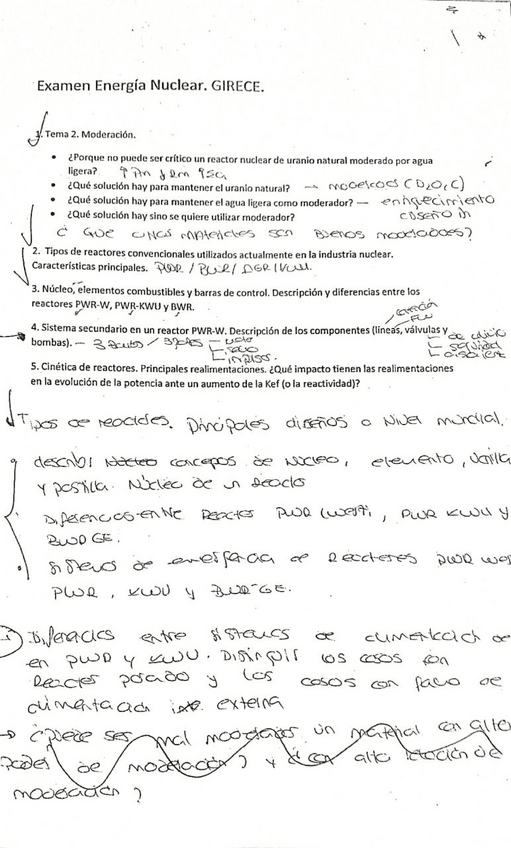 Examen Energía Nuclear. GIRECE.
1. Tema 2. Moderación.
• ¿Porque no puede ser crítico un reactor nuclear de uranio natural moderado por agua
ligera?
• ¿Qué solución hay para mantener el uranio natural? → moderador (D2O, C)
• ¿Qué solución hay para mantener el agua ligera como moderador? — enriquecimiento
• ¿Qué solución hay sino se quiere utilizar moderador?
¿ Que materiales son buenos moderadores?
2. Tipos de reactores convencionales utilizados actualmente en la industria nuclear.
Características principales. PWR / BWR /
3. Núcleo, elementos combustibles y barras de control. Descripción y diferencias entre los
reactores PWR-W, PWR-KWU y BWR.
4. Sistema secundario en un reactor PWR-W. Descripción de los componentes (líneas, válvulas y
bombas). —
5. Cinética de reactores. Principales realimentaciones. ¿Qué impacto tienen las realimentaciones
en la evolución de la potencia ante un aumento de la Kef (o la reactividad)?
Tipos de reactores. Principales diseños a nivel mundial.
describi conceptos de Núcleo, elemento, varilla
y pastilla. Núcleo de un reactor
Diferencias entre Reactor PWR (West), PWR KWU y
BWR GE.
Sistemas de emergencia de Reactores PWR wes
PWR, KWU y BWR-GE.
Diferencias entre sistemas de alimentación de
en PWR y KWU. Distinguir los casos con
Reactor parado y los casos con fallo de
alimentación externa
→ ¿Puede ser mal moderador un material con alto
Poder de moderación? y ¿con alto de
moderación?